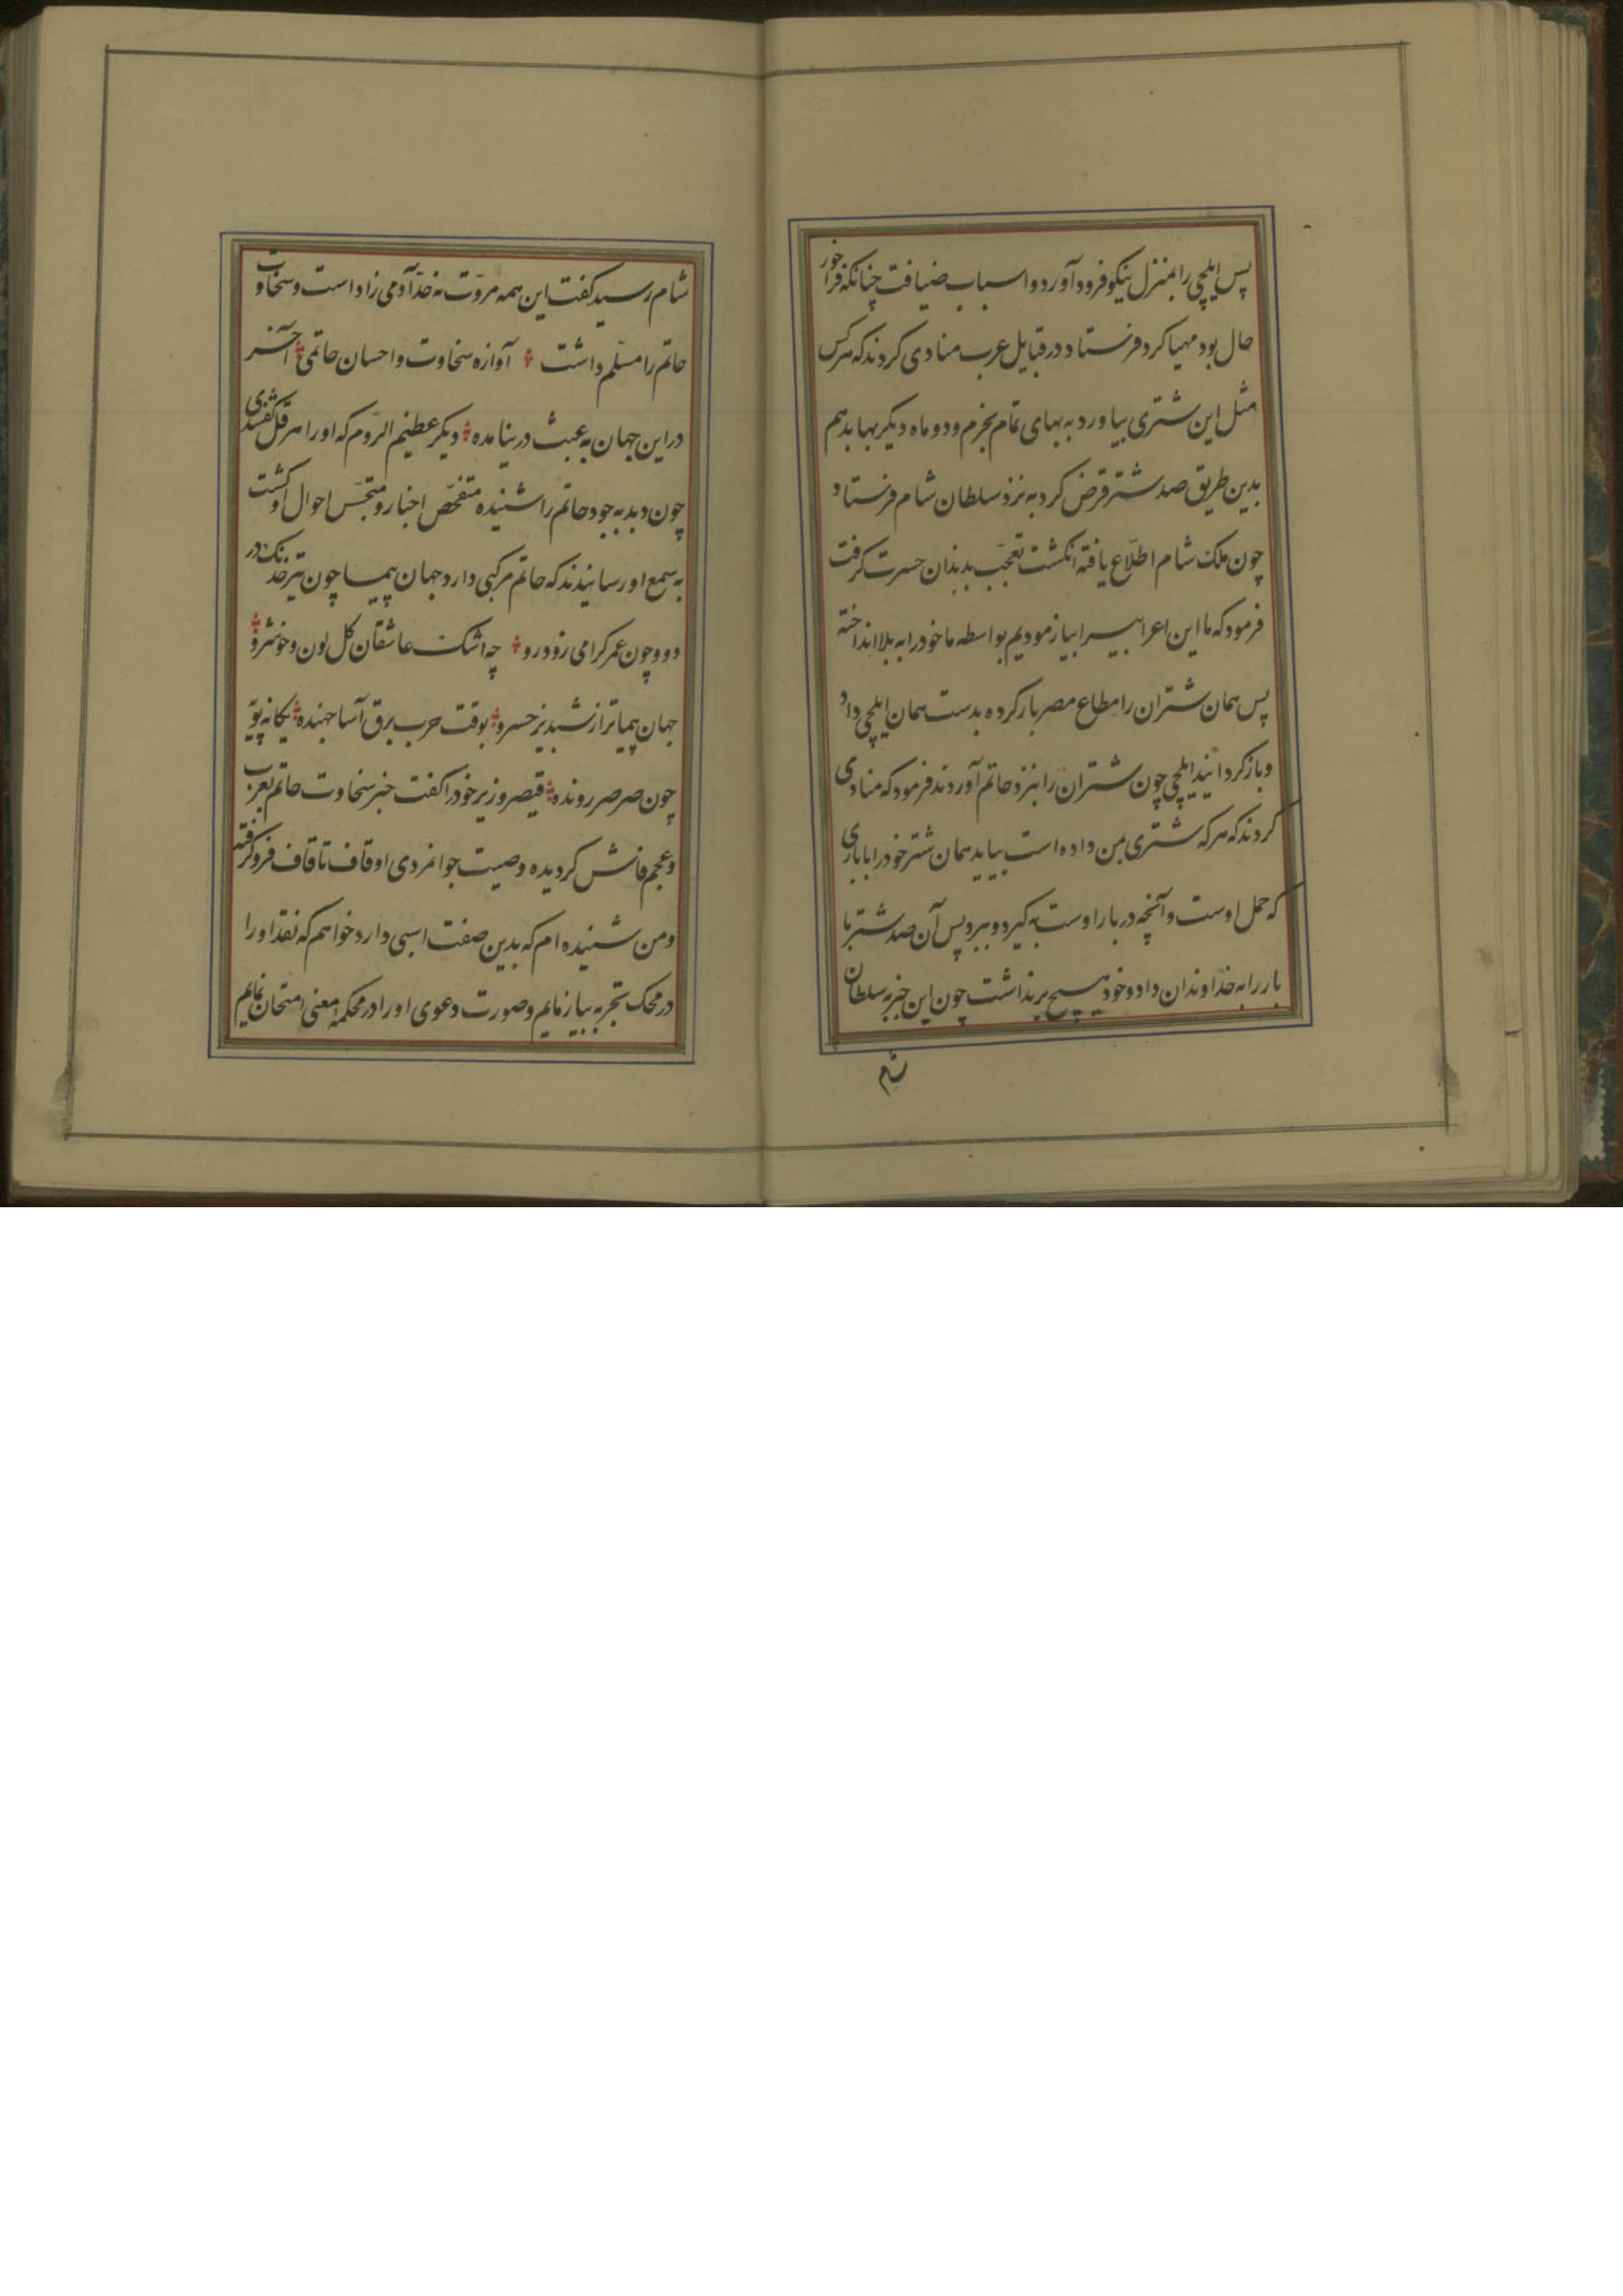 پس ایلچی را بمنزل نیکو فرود آورد و اسباب ضیافت چنانکه فراخور
حال بود مهیا کرد فرستاد در قبایل عرب منادی کردند که هرکس
مثل این شتری بیاورد به بهای تمام بخرم و دو ماه دیگر بها بدهم
بدین طریق صد شتر قرض کرد به نزد سلطان شام فرستاد
چون ملک شام اطلاع یافته انکشت تعجّب بدندان حسرت کرفت
فرمود که ما این اعرابیرا بیازمودیم بواسطه ما خود را به بلا انداخته
پس همان شتران را مطاع مصر بار کرده بدست همان ایلچی داد
و باز کردانید ایلچی چون شتران را بنزد حاتم آوردند فرمود که منادی
کردند که هر که شتری بمن داده است بیاید همان شتر خود را با باری
که حمل اوست و آنچه در بار اوست به کیرد و ببرد پس آن صد شتر با
بار را به خداوندان داد و خود هیچ برنداشت چون این خبر به سلطان
شام
شام رسید کفت این همه مروّت نه حدّ آدمی زاد است و سخاوت
حاتم را مسلّم داشت آوازه سخاوت و احسان حاتمی آخر
در این جهان به عبث در نیامده دیکر عظیم الروم که او را هرقل کفتندی
چون دبدبه جود حاتم را شنیده متفحّص اخبار و متجسّس احوال او کشت
به سمع او رسانیدند که حاتم مرکبی دارد جهان پیما چون تیر خدنک در
دو و چون عمر کرامی زود رو چه اشک عاشقان کل لون و خوشرو
جهان پیماتر از شبدیز خسرو بوقت حرب برق آسا جهنده یکانه پویّ
چون صرصر رونده قیصر وزیر خود را کفت خبر سخاوت حاتم بعرب
و عجم فاش کردیده و صیت جوانمردی او قاف تا قاف فرو کرفته
و من شنیده ام که بدین صفت اسبی دارد خواهم که نقد او را
در محک تجربه بیازمایم و صورت دعوی او را در محکمهٔ معنی امتحان نمایم